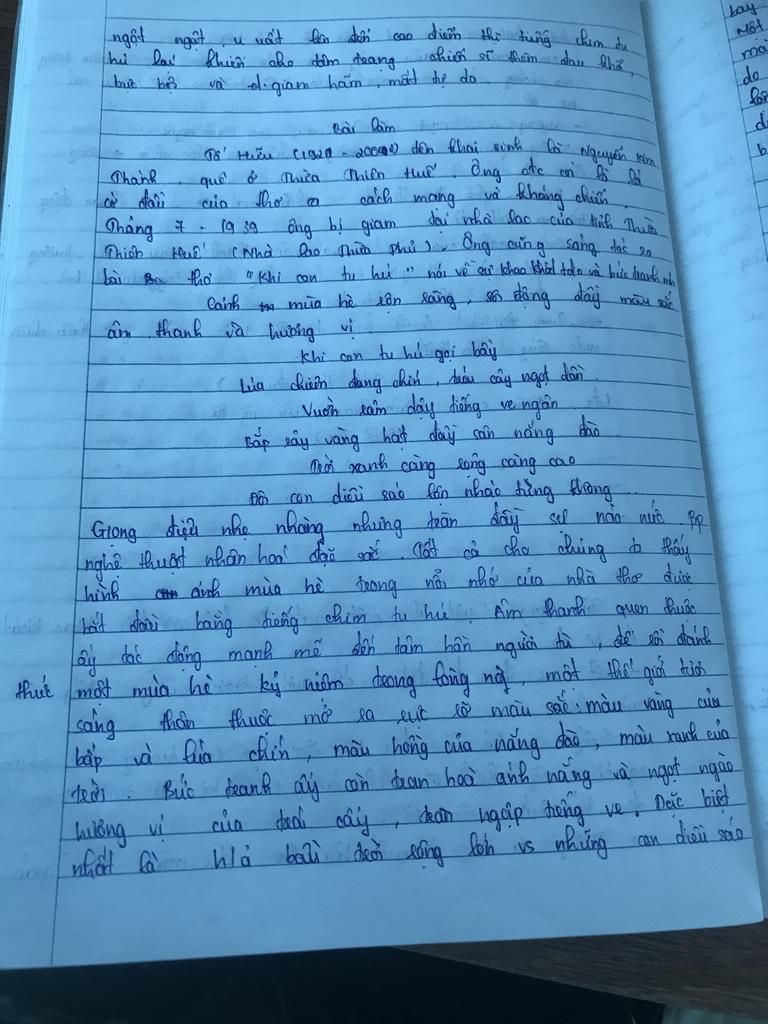 ngột ngạt, u uất lên đến cao điểm thì tiếng chim tu
hú lại khiến cho tâm trạng chiến sĩ thêm đau khổ,
bực bội và giam hãm, mất tự do.
Bài làm
Tố Hữu (1920 - 2002) tên khai sinh là Nguyễn Kim
Thành, quê ở Thừa Thiên Huế. Ông đc coi là lá
cờ đầu của thơ ca cách mạng và kháng chiến.
Tháng 7 - 1939 ông bị giam tại nhà lao của tỉnh Thừa
Thiên Huế (Nhà lao Thừa phủ). Ông cũng sáng tác ra
bài thơ "Khi con tu hú" nói về sự khao khát tự do và bức tranh
Cảnh mùa hè rộn ràng, sôi động đầy màu sắc
âm thanh và hương vị
Khi con tu hú gọi bầy
Lúa chiêm đang chín, trái cây ngọt dần
Vườn râm dậy tiếng ve ngân
Bắp rây vàng hạt đầy sân nắng đào
Trời xanh càng rộng càng cao
Đôi con diều sáo lộn nhào từng không...
Giọng điệu nhẹ nhàng nhưng tràn đầy sự náo nức. Bp
nghệ thuật nhân hoá đặc sắc. Tất cả cho chúng ta thấy
hình ảnh mùa hè trong nỗi nhớ của nhà thơ được
bắt đầu bằng tiếng chim tu hú. Âm thanh quen thuộc
ấy tác động mạnh mẽ đến tâm hồn người tù, để rồi đánh
thức một mùa hè kỷ niệm trong lòng ng, một thế giới tươi
sáng thân thuộc mở ra rực rỡ màu sắc: màu vàng của
bắp và lúa chín, màu hồng của nắng đào, màu xanh của
trời. Bức tranh ấy còn tran hoà ánh nắng và ngọt ngào
hương vị của trái cây, tràn ngập tiếng ve. Đặc biệt
nhất là h/a bầu trời rộng lớn vs những con diều sáo